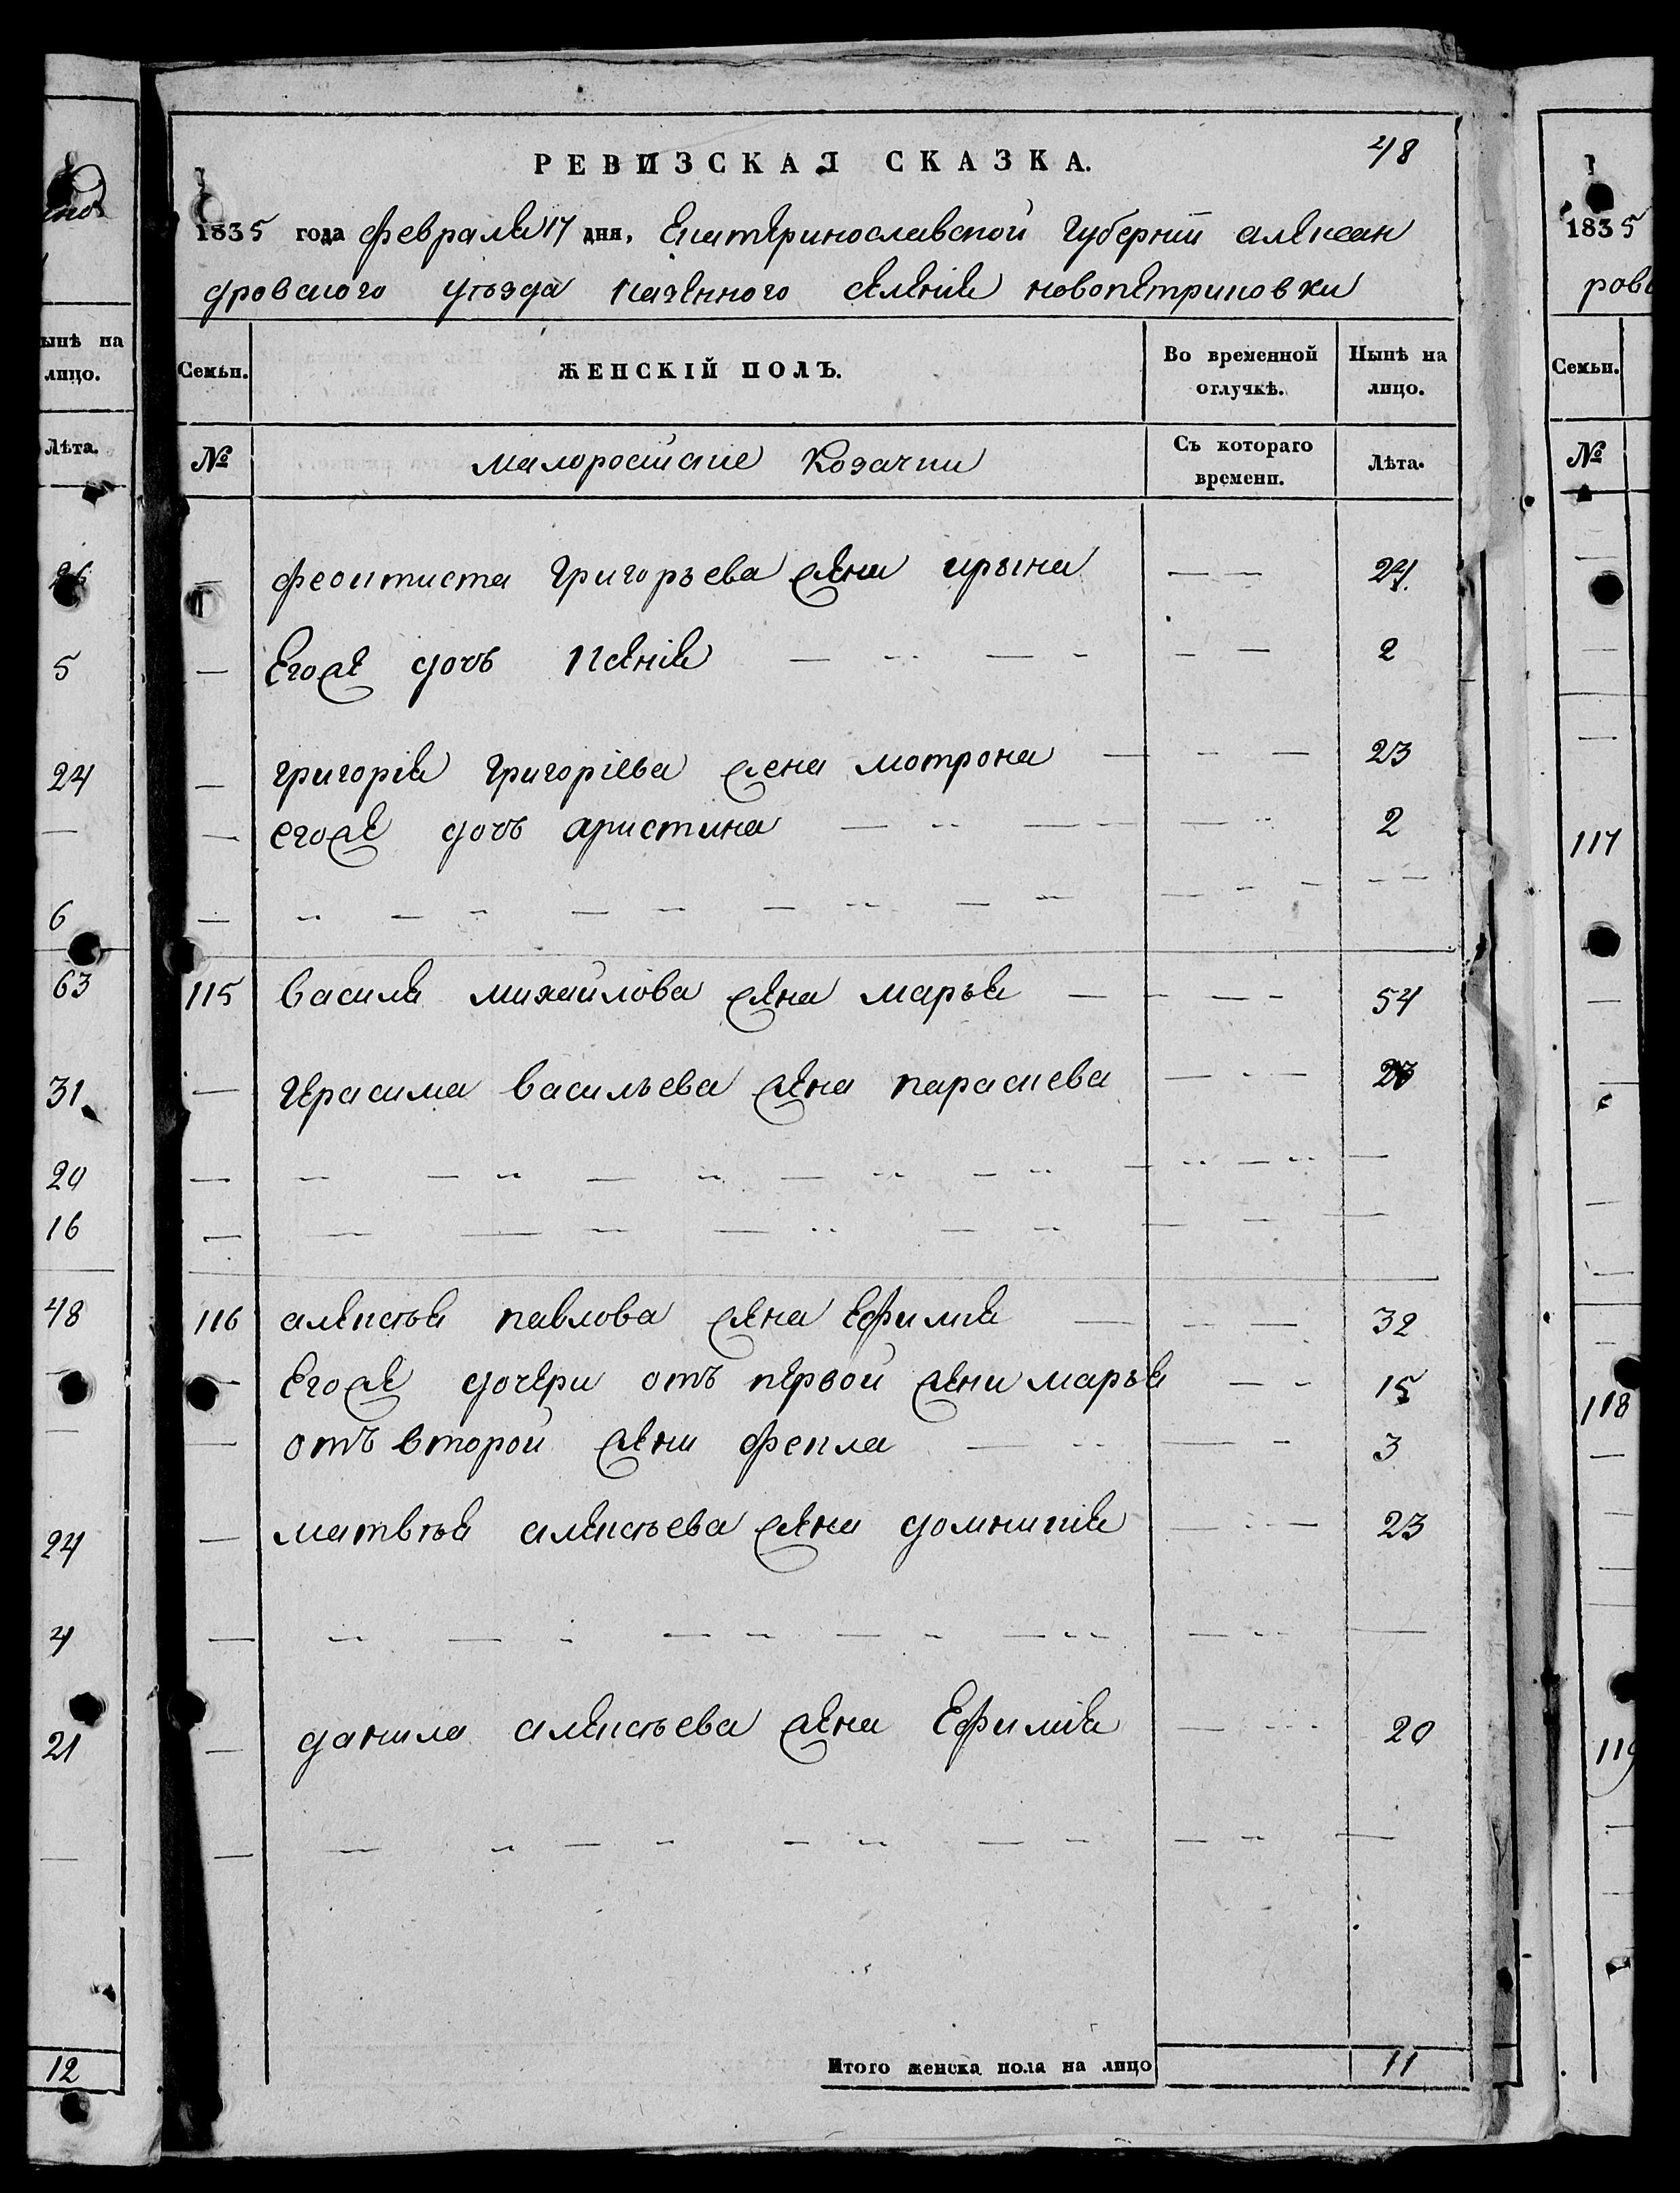 48
РЕВИЗСКАЯ СКАЗКА.
1835 года февраля 17 дня, Екатеринославской губернии алексан
дровского уезда казенного селения новопетриковки
Семьи. ЖЕНСКІЙ ПОЛЪ. Во временной отлучкѣ. Нынѣ на лицо.
№ малоросийские козачки Съ котораго времени. Лѣта.
— феоктиста григорьева жена ирына — — 24
— Егоже дочь Ксения — — 2
— григория григоріева жена мотрона — — 23
— егоже дочь христина — — 2
115 василя михайлова жена марья — — 54
— герасима васильева жена параскева — — 23
116 алексея павлова жена Ефимия — — 32
— Егоже дочери отъ первой жени марья — — 15
— отъ второй жени фекла — — 3
— матвея алексеева жена домникия — — 23
— данила алексеева жена Ефимия — — 20
Итого женска пола на лицо 11
ынѣ на
лицо.
Лѣта.
26
5
24
6
63
31
20
16
48
24
4
21
12
1835
ров
Семьи.
№
117
118
119